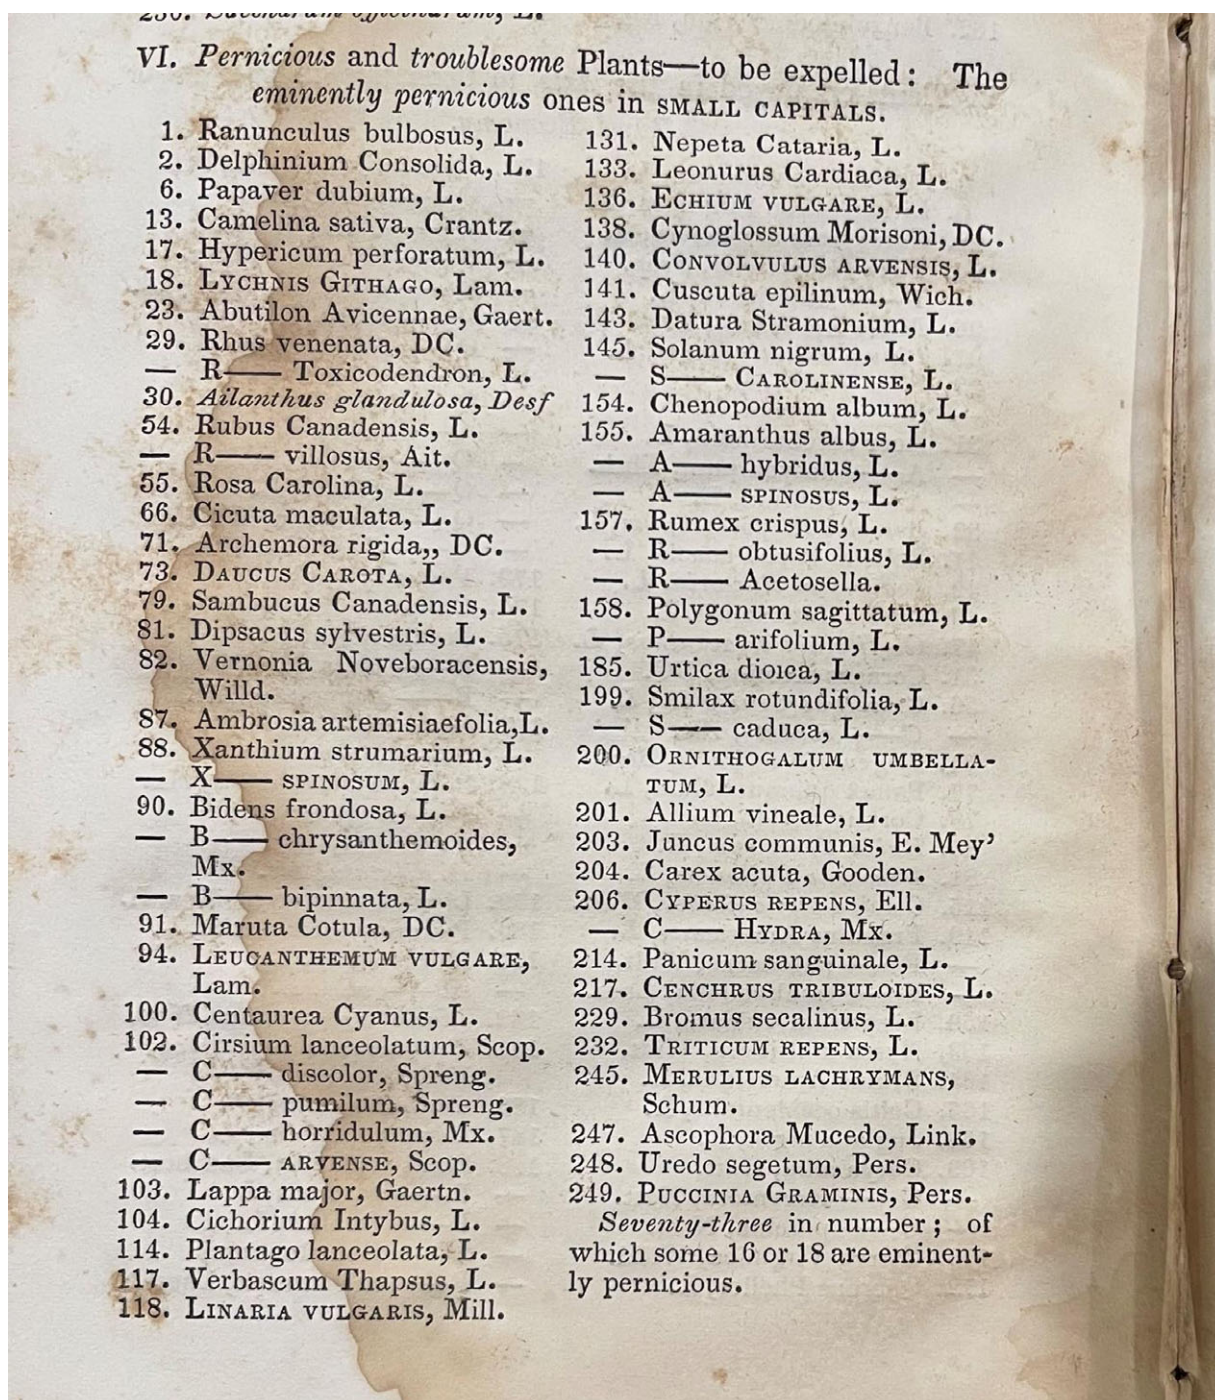 VI. Pernicious and troublesome Plants—to be expelled: The
eminently pernicious ones in SMALL CAPITALS.
1. Ranunculus bulbosus, L.
2. Delphinium Consolida, L.
6. Papaver dubium, L.
13. Camelina sativa, Crantz.
17. Hypericum perforatum, L.
18. LYCHNIS GITHAGO, Lam.
23. Abutilon Avicennae, Gaert.
29. Rhus venenata, DC.
— R—— Toxicodendron, L.
30. Ailanthus glandulosa, Desf
54. Rubus Canadensis, L.
— R—— villosus, Ait.
55. Rosa Carolina, L.
66. Cicuta maculata, L.
71. Archemora rigida,, DC.
73. DAUCUS CAROTA, L.
79. Sambucus Canadensis, L.
81. Dipsacus sylvestris, L.
82. Vernonia Noveboracensis,
Willd.
87. Ambrosia artemisiaefolia, L.
88. Xanthium strumarium, L.
— X—— SPINOSUM, L.
90. Bidens frondosa, L.
— B—— chrysanthemoides,
Mx.
— B—— bipinnata, L.
91. Maruta Cotula, DC.
94. LEUCANTHEMUM VULGARE,
Lam.
100. Centaurea Cyanus, L.
102. Cirsium lanceolatum, Scop.
— C—— discolor, Spreng.
— C—— pumilum, Spreng.
— C—— horridulum, Mx.
— C—— ARVENSE, Scop.
103. Lappa major, Gaertn.
104. Cichorium Intybus, L.
114. Plantago lanceolata, L.
117. Verbascum Thapsus, L.
118. LINARIA VULGARIS, Mill.
131. Nepeta Cataria, L.
133. Leonurus Cardiaca, L.
136. ECHIUM VULGARE, L.
138. Cynoglossum Morisoni, DC.
140. CONVOLVULUS ARVENSIS, L.
141. Cuscuta epilinum, Wich.
143. Datura Stramonium, L.
145. Solanum nigrum, L.
— S—— CAROLINENSE, L.
154. Chenopodium album, L.
155. Amaranthus albus, L.
— A—— hybridus, L.
— A—— SPINOSUS, L.
157. Rumex crispus, L.
— R—— obtusifolius, L.
— R—— Acetosella.
158. Polygonum sagittatum, L.
— P—— arifolium, L.
185. Urtica dioica, L.
199. Smilax rotundifolia, L.
— S—— caduca, L.
200. ORNITHOGALUM UMBELLA-
TUM, L.
201. Allium vineale, L.
203. Juncus communis, E. Mey’
204. Carex acuta, Gooden.
206. CYPERUS REPENS, Ell.
— C—— HYDRA, Mx.
214. Panicum sanguinale, L.
217. CENCHRUS TRIBULOIDES, L.
229. Bromus secalinus, L.
232. TRITICUM REPENS, L.
245. MERULIUS LACHRYMANS,
Schum.
247. Ascophora Mucedo, Link.
248. Uredo segetum, Pers.
249. PUCCINIA GRAMINIS, Pers.
Seventy-three in number; of
which some 16 or 18 are eminent-
ly pernicious.